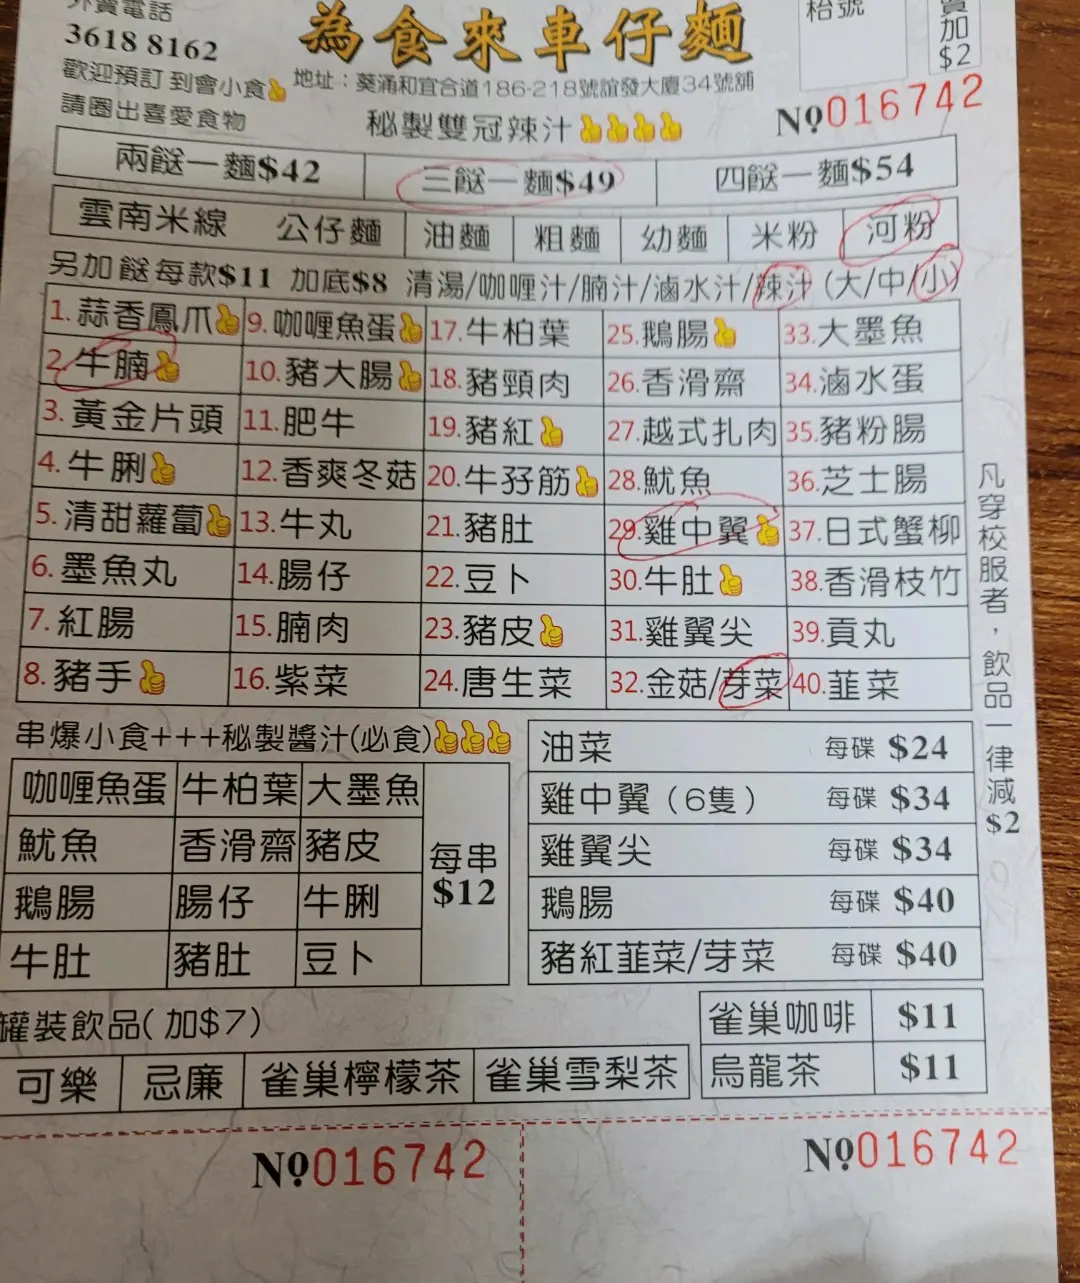 外賣電話
3618 8162
為食來車仔麵
枱號
賣加$2
歡迎預訂 到會小食
地址：葵涌和宜合道186-218號誼發大廈34號舖
請圈出喜愛食物
秘製雙冠辣汁
№016742
兩餸一麵$42 三餸一麵$49 四餸一麵$54
雲南米線 公仔麵 油麵 粗麵 幼麵 米粉 河粉
另加餸每款$11 加底$8 清湯/咖喱汁/腩汁/滷水汁/辣汁 (大/中/小)
1.蒜香鳳爪 9.咖喱魚蛋 17.牛柏葉 25.鵝腸 33.大墨魚
2.牛腩 10.豬大腸 18.豬頸肉 26.香滑齋 34.滷水蛋
3.黃金片頭 11.肥牛 19.豬紅 27.越式扎肉 35.豬粉腸
4.牛脷 12.香爽冬菇 20.牛孖筋 28.魷魚 36.芝士腸
5.清甜蘿蔔 13.牛丸 21.豬肚 29.雞中翼 37.日式蟹柳
6.墨魚丸 14.腸仔 22.豆卜 30.牛肚 38.香滑枝竹
7.紅腸 15.腩肉 23.豬皮 31.雞翼尖 39.貢丸
8.豬手 16.紫菜 24.唐生菜 32.金菇/芽菜 40.韮菜
凡穿校服者，飲品一律減$2
串爆小食+++秘製醬汁(必食)
咖喱魚蛋 牛柏葉 大墨魚
魷魚 香滑齋 豬皮
鵝腸 腸仔 牛脷
牛肚 豬肚 豆卜
每串
$12
油菜 每碟 $24
雞中翼（6隻） 每碟 $34
雞翼尖 每碟 $34
鵝腸 每碟 $40
豬紅韮菜/芽菜 每碟 $40
罐裝飲品(加$7)
可樂 忌廉 雀巢檸檬茶 雀巢雪梨茶
雀巢咖啡 $11
烏龍茶 $11
№016742
№016742